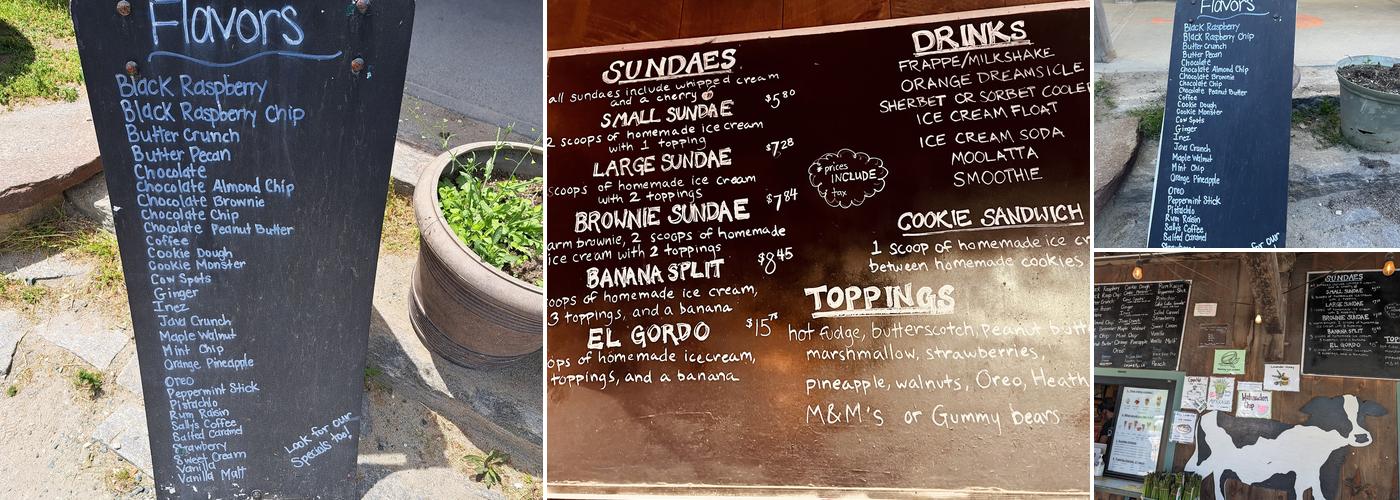 Flavors
Black Raspberry
Black Raspberry Chip
Butter Crunch
Butter Pecan
Chocolate
Chocolate Almond Chip
Chocolate Brownie
Chocolate Chip
Chocolate Peanut Butter
Coffee
Cookie Dough
Cookie Monster
Cow Spots
Ginger
Inez
Java Crunch
Maple Walnut
Mint Chip
Orange Pineapple
Oreo
Peppermint Stick
Pistachio
Rum Raisin
Sally's Coffee
Salted Caramel
Strawberry
Sweet Cream
Vanilla
Vanilla Malt
Look for our
Specials too!
SUNDAES
all sundaes include whipped cream
and a cherry
SMALL SUNDAE $5.80
2 scoops of homemade ice cream
with 1 topping
LARGE SUNDAE $7.28
scoops of homemade ice cream
with 2 toppings
BROWNIE SUNDAE $7.84
arm brownie, 2 scoops of homemade
ice cream with 2 toppings
BANANA SPLIT $8.45
oops of homemade ice cream,
3 toppings, and a banana
EL GORDO $15.75
ops of homemade icecream,
toppings, and a banana
* prices
INCLUDE
tax
DRINKS
FRAPPE/MILKSHAKE
ORANGE DREAMSICLE
SHERBET OR SORBET COOLER
ICE CREAM FLOAT
ICE CREAM SODA
MOOLATTA
SMOOTHIE
COOKIE SANDWICH
1 scoop of homemade ice cr
between homemade cookies
TOPPINGS
hot fudge, butterscotch, peanut butt
marshmallow, strawberries,
pineapple, walnuts, Oreo, Heath
M&M's or Gummy bears
Flavors
Black Raspberry
Black Raspberry Chip
Butter Crunch
Butter Pecan
Chocolate
Chocolate Almond Chip
Chocolate Brownie
Chocolate Chip
Chocolate Peanut Butter
Coffee
Cookie Dough
Cookie Monster
Cow Spots
Ginger
Inez
Java Crunch
Maple Walnut
Mint Chip
Orange Pineapple
Oreo
Peppermint Stick
Pistachio
Rum Raisin
Sally's Coffee
Salted Caramel
for our
SUNDAES
SMALL SUNDAE
LARGE SUNDAE
BROWNIE SUNDAE
BANANA SPLIT
EL GORDO
TOP